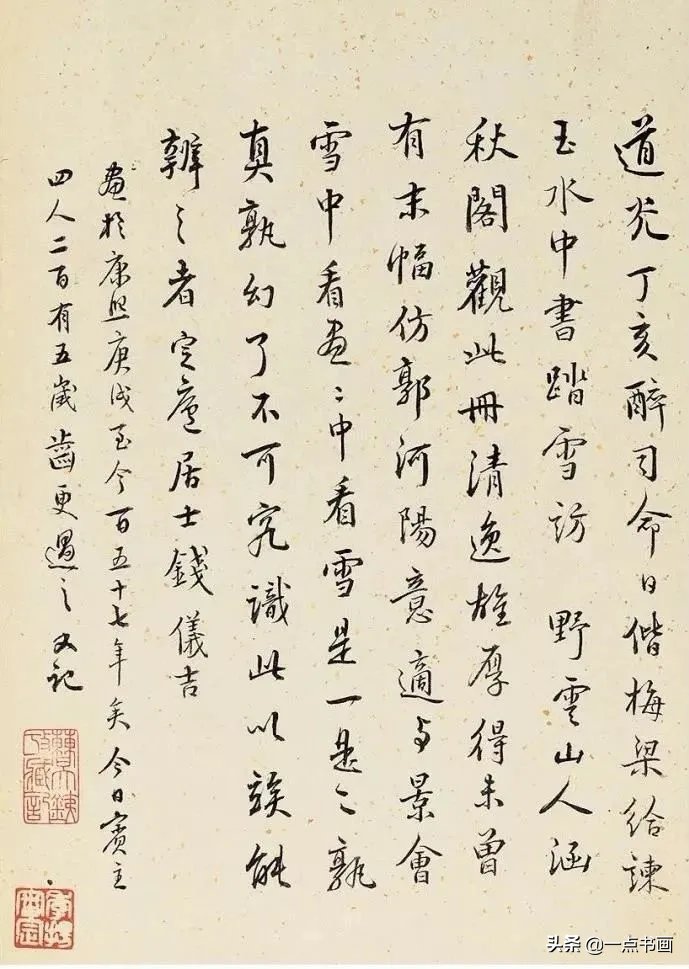 道光丁亥醉司命日偕梅梁給諫
玉水中書踏雪訪 野雲山人涵
秋閣觀此冊清逸雄厚得未曾
有末幅仿郭河陽意適与景會
雪中看畫〻中看雪是一是二孰
真孰幻了不可究識此以竢能
辨之者定廬居士錢儀吉
畫於康熙庚戌至今百五十七年矣今日賓主
四人二百有五歲齒更過之又記
头条 @一点书画